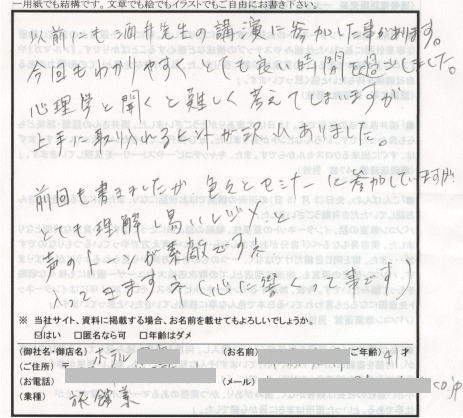 一用紙でも結構です。文章でも絵でもイラストでもご自由にお書き下さい。
以前にも酒井先生の講演に参加した事があります。
今回もわかりやすくとても良い時間を過ごしました。
心理学と聞くと難しく考えてしまいますが
上手に取り入れるヒントが沢山ありました。
前回も書きましたが、色々とセミナーに参加していますが
とても理解し易いレジメと
声のトーンが素敵ですネ
入ってきますネ(心に響くって事です)
※ 当社サイト、資料に掲載する場合、お名前を載せてもよろしいでしょうか。
☑はい □匿名なら可 □年齢はダメ
(御社名・御店名) ホテル (お名前) (ご年齢) 才
(ご住所) 〒
(お電話) (メール)
(業種) 旅館業